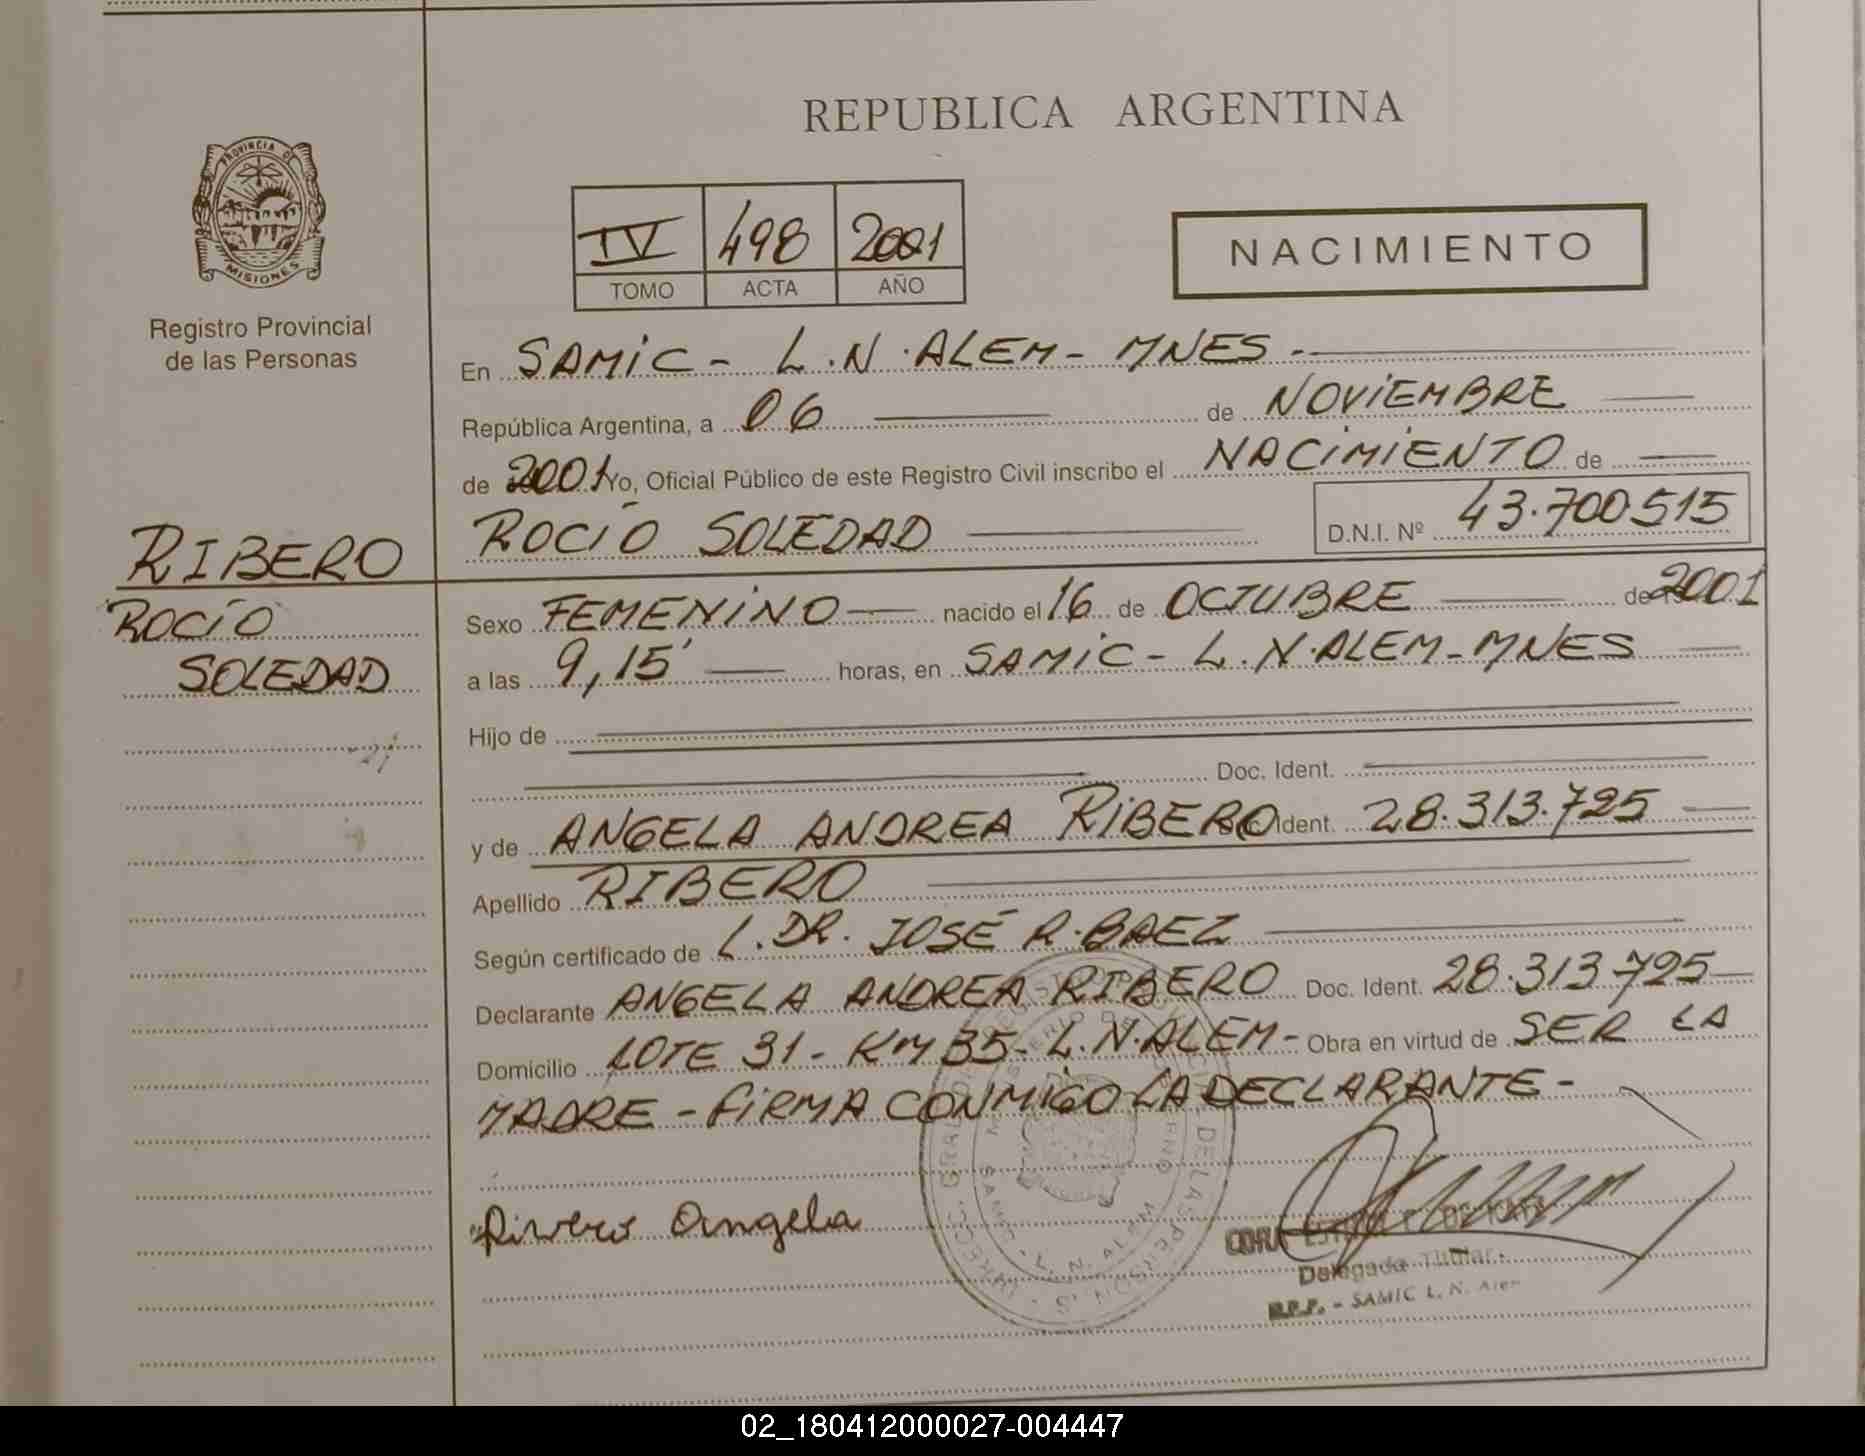 REPUBLICA ARGENTINA
PROVINCIA DE
MISIONES
Registro Provincial
de las Personas
IV 498 2001
TOMO ACTA AÑO
NACIMIENTO
En SAMIC - L.N. ALEM - MNES.-
República Argentina, a 06 de NOVIEMBRE
de 2001 Yo, Oficial Público de este Registro Civil inscribo el NACIMIENTO de
ROCÍO SOLEDAD D.N.I. Nº 43.700515
RIBERO
ROCÍO
SOLEDAD
Sexo FEMENINO nacido el 16 de OCTUBRE de 2001
a las 9,15' horas, en SAMIC - L.N. ALEM - MNES
Hijo de
Doc. Ident.
y de ANGELA ANDREA RIBERO Ident. 28.313.725
Apellido RIBERO
Según certificado de L. DR. JOSÉ R. BAEZ
Declarante ANGELA ANDREA RIBERO Doc. Ident. 28.313.725
Domicilio LOTE 31 - KM 35 - L.N. ALEM - Obra en virtud de SER LA
MADRE - FIRMA CONMIGO LA DECLARANTE -
Rivero Angela
Delegada Titular
R.P.P. - SAMIC L. N. Alem
02_180412000027-004447